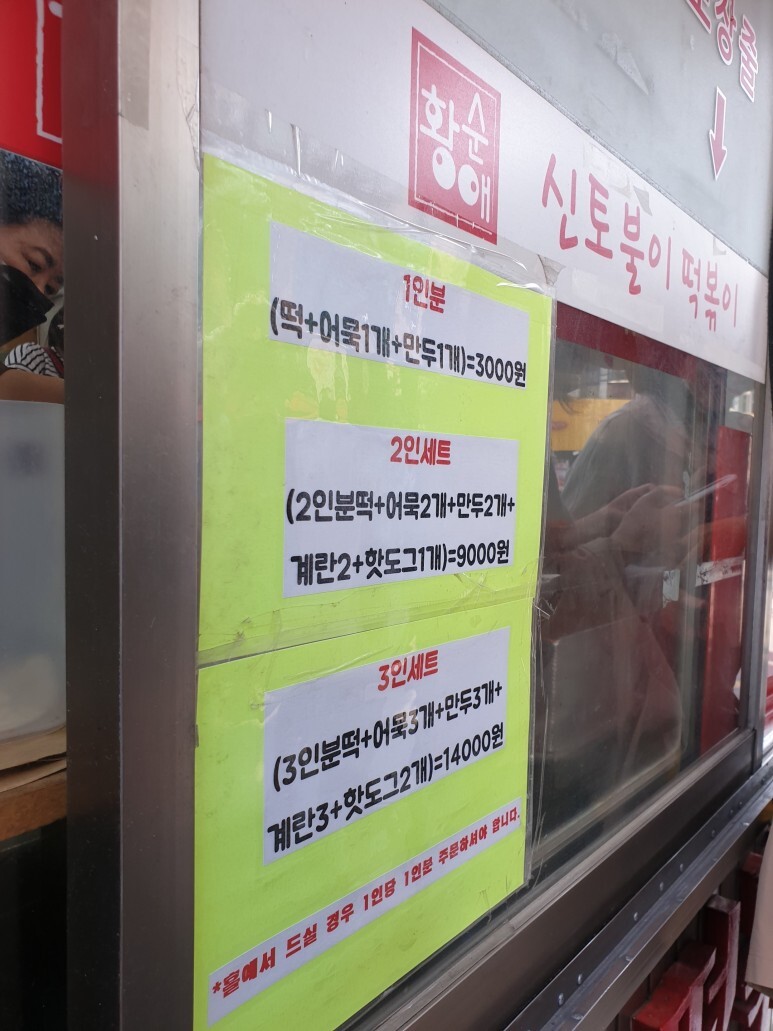 황순애
신토불이 떡볶이
1인분
(떡+어묵1개+만두1개)=3000원
2인세트
(2인분떡+어묵2개+만두2개+
계란2+핫도그1개)=9000원
3인세트
(3인분떡+어묵3개+만두3개+
계란3+핫도그2개)=14000원
*홀에서 드실 경우 1인당 1인분 주문하셔야 합니다.